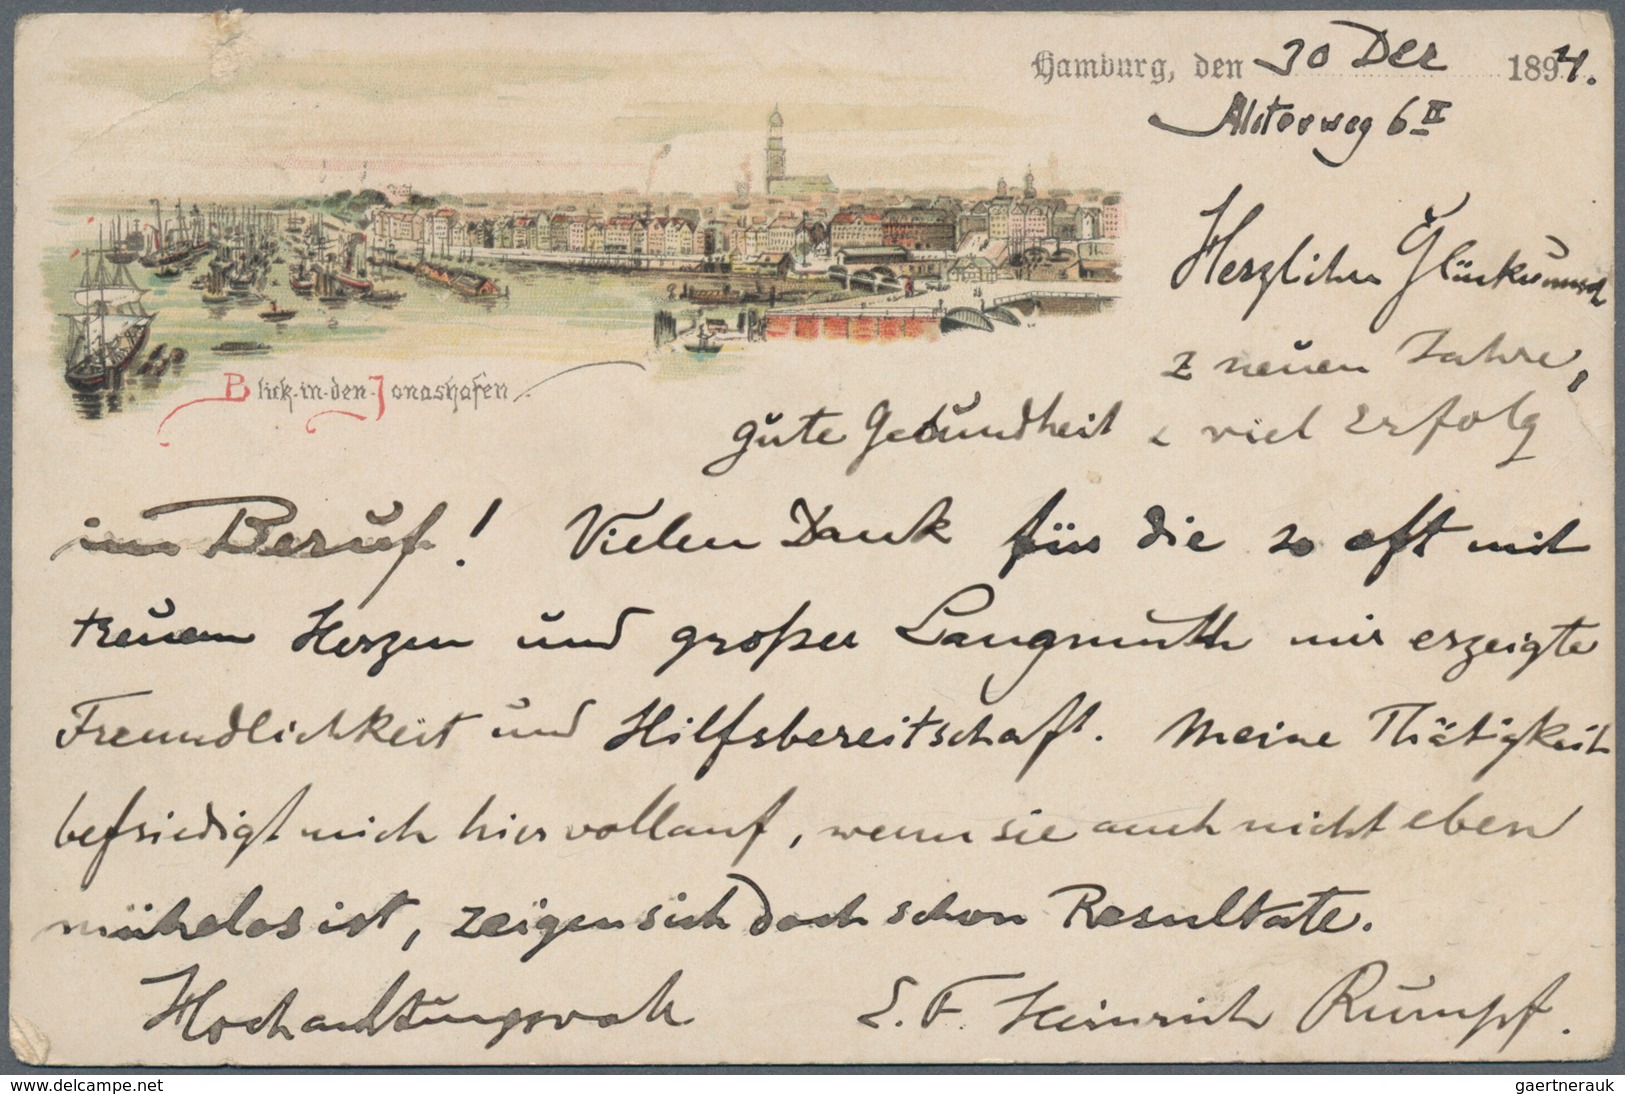 Hamburg, den 30 Dec 1894.
Alsterweg 6 II
Herzlichen Glückwunsch
z neuen Jahre,
Blick in den Jonashafen
gute Gesundheit & viel Erfolg
im Beruf! Vielen Dank für die so oft mit
treuem Herzen und großer Langmuth mir erzeigte
Freundlichkeit und Hilfsbereitschaft. Meine Thätigkeit
befriedigt mich hier vollauf, wenn sie auch nicht eben
mühelos ist, zeigen sich doch schon Resultate.
Hochachtungsvoll E. F. Heinrich Rumpf.
www.delcampe.net
gaertnerauk